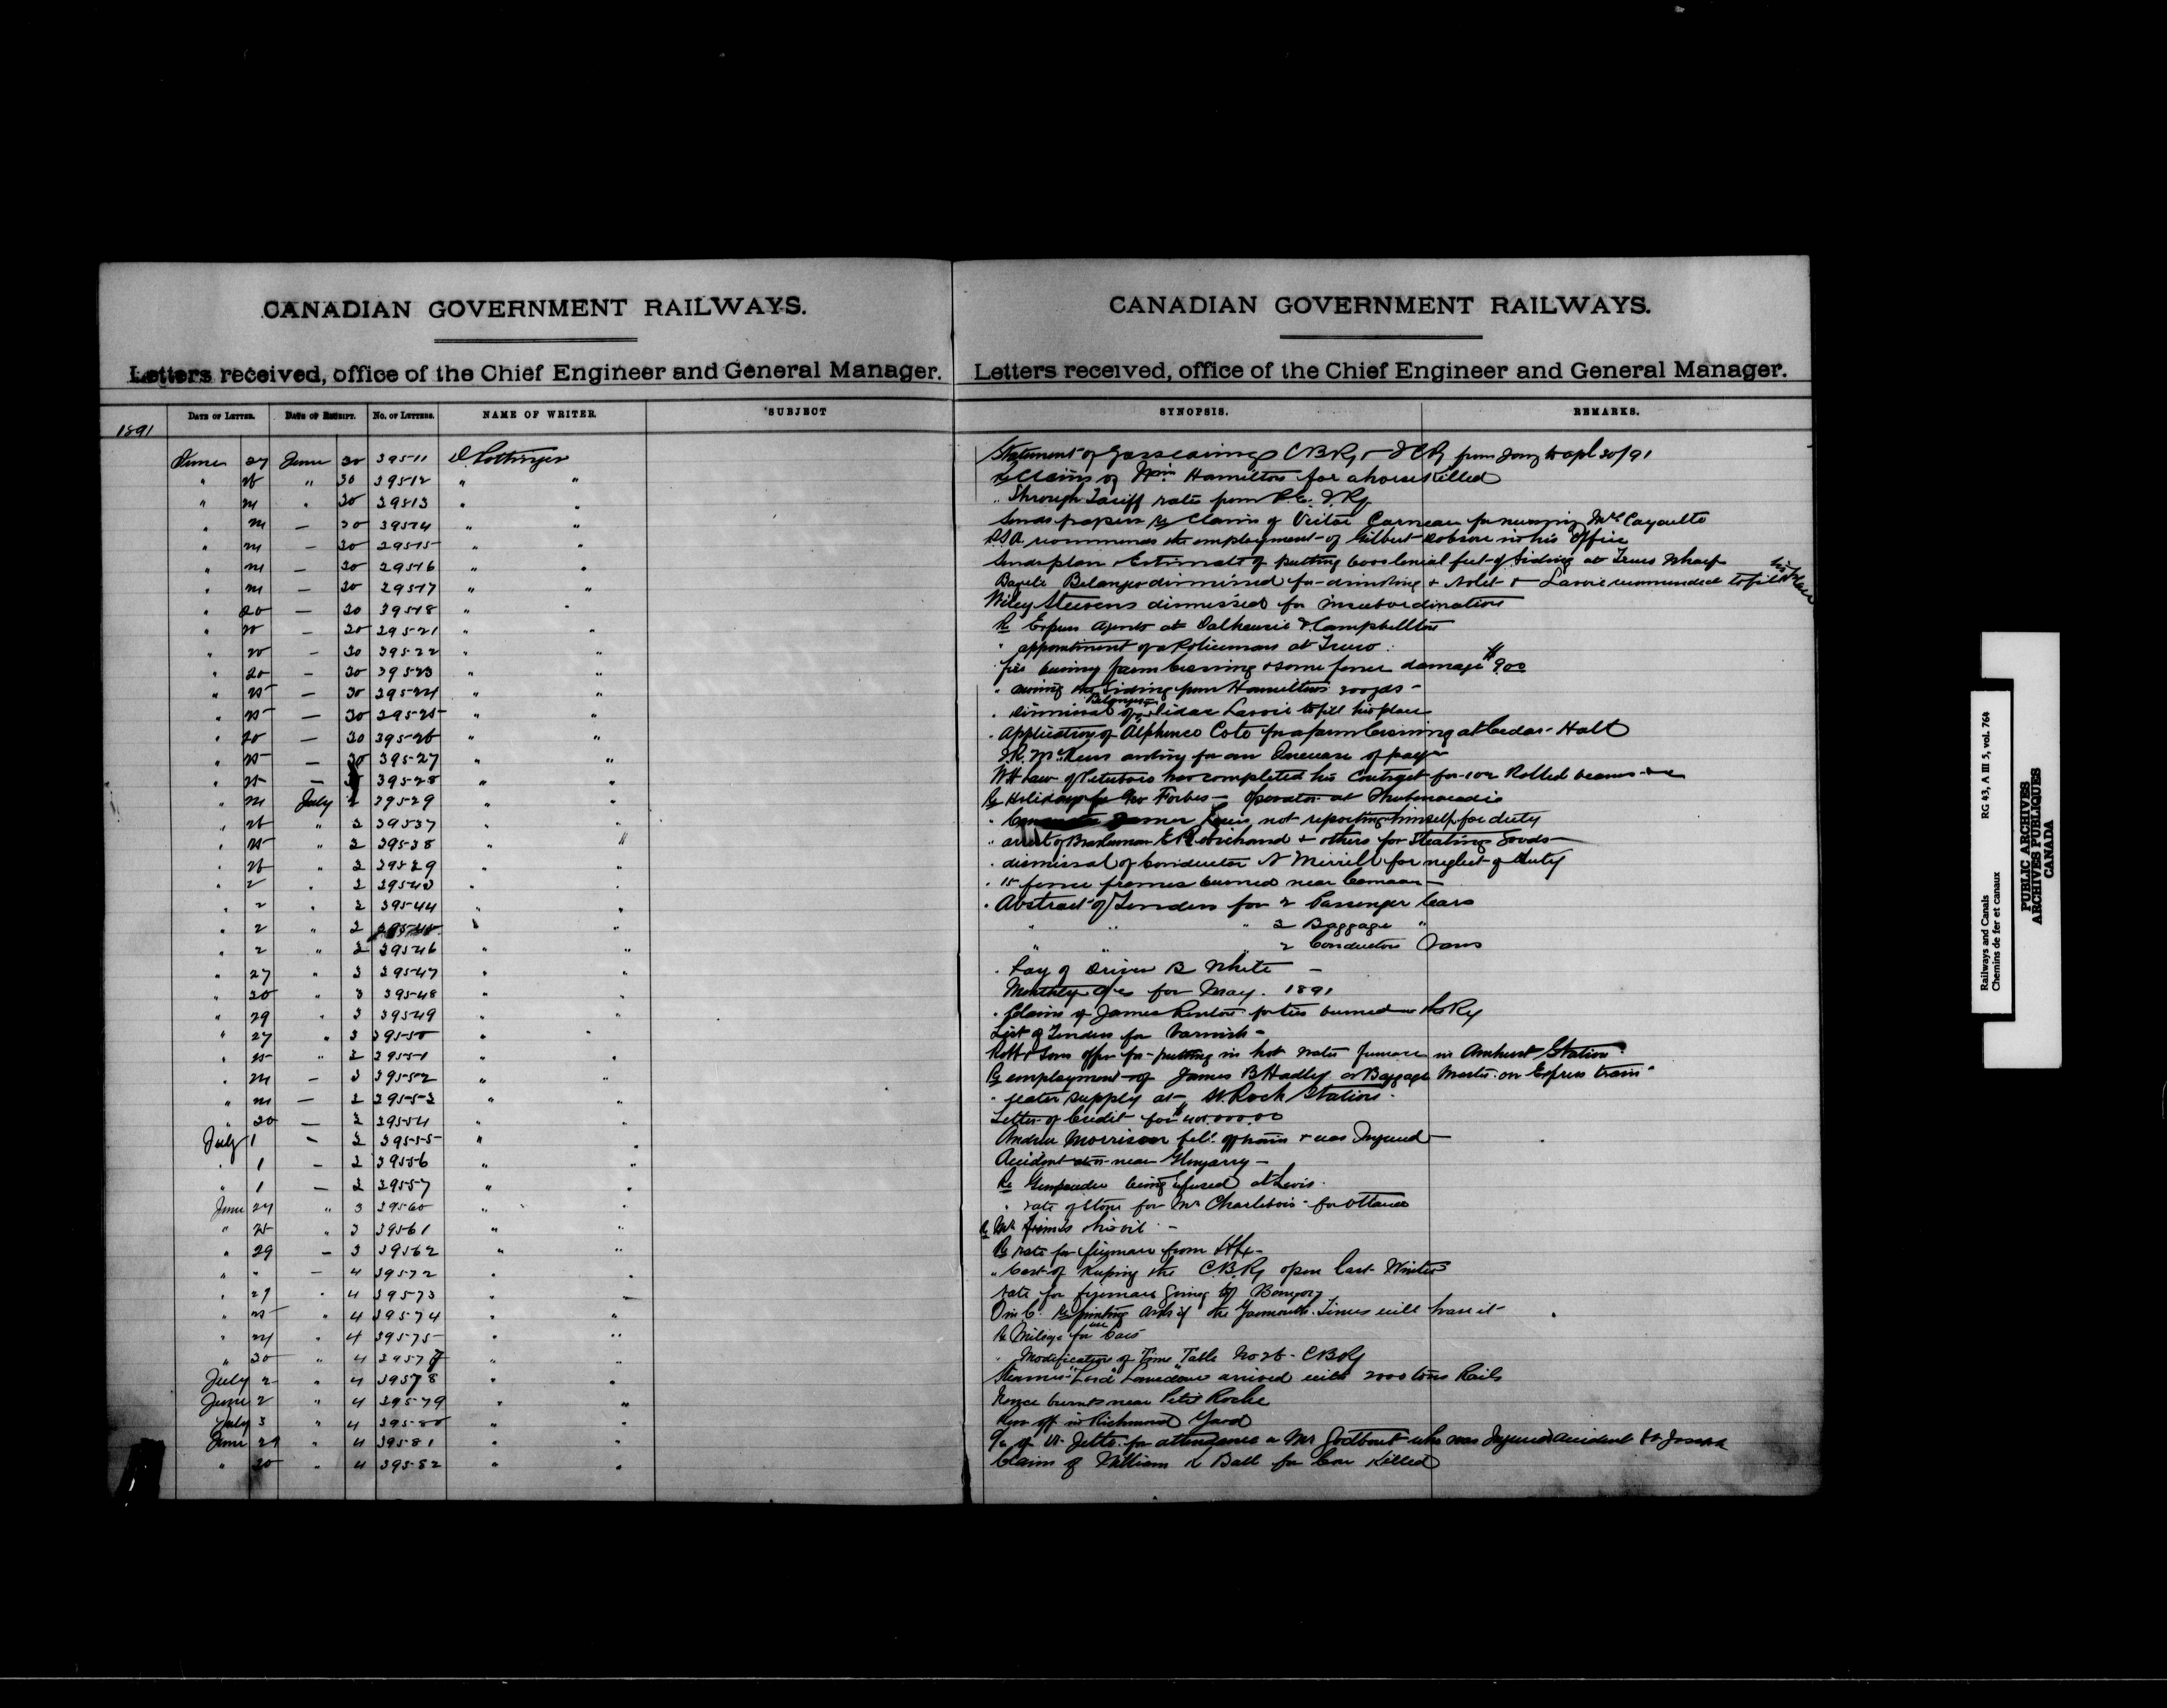 CANADIAN GOVERNMENT RAILWAYS.
Letters received, office of the Chief Engineer and General Manager.
DATE OF LETTER. DATE OF RECEIPT. NO. OF LETTERS. NAME OF WRITER. SUBJECT
1891
June 27 June 30 39511 D. Pottinger
" 26 " 30 39512 " "
" 24 " 30 39513 " "
" 24 — 30 39514 " "
" 24 — 30 39515 " "
" 24 — 30 39516 " "
" 24 — 30 39517 " "
" 20 — 30 39518 " "
" 20 — 30 39521 " "
" 20 — 30 39522 " "
" 20 — 30 39523 " "
" 25 — 30 39524 " "
" 25 — 30 39525 " "
" 20 — 30 39526 " "
" 25 — 30 39527 " "
" 25 — 39528 " "
" 24 July 2 39529 " "
" 26 " 2 39537 " "
" 25 " 2 39538 " "
" 26 " 2 39539 " "
" 2 " 2 39543 " "
" 2 " 2 39544 " "
" 2 " 2 39545 " "
" 2 " 2 39546 " "
" 27 " 3 39547 " "
" 20 " 3 39548 " "
" 29 " 3 39549 " "
" 27 " 3 39550 " "
" 25 " 2 39551 " "
" 24 — 3 39552 " "
" 24 — 2 39553 " "
" 30 — 2 39554 " "
July 1 — 2 39555 " "
" 1 — 2 39556 " "
" 1 — 2 39557 " "
June 24 " 3 39560 " "
" 25 " 3 39561 " "
" 29 — 3 39562 " "
" " — 4 39572 " "
" 29 " 4 39573 " —
" 25 " 4 39574 " "
" 24 " 4 39575 " "
" 30 " 4 39577 " "
July 2 " 4 39578 " "
June 2 " 4 39579 " "
July 3 " 4 39580 " "
June 29 " 4 39581 " "
" 30 " 4 39582 " "
CANADIAN GOVERNMENT RAILWAYS.
Letters received, office of the Chief Engineer and General Manager.
SYNOPSIS. REMARKS.
Statement of Gross earnings C B Ry & I C Ry from Jany to apl 30/91
Re Claims of Wm Hamilton for a horse Killed
" Through Tariff rates from P. E. I. Ry
Sends papers re Claim of Victor Garneau for nursing Mr Cayouette
recommends the employment of Gilbert Robson in his office
Sends plan & Estimate of putting 600 lineal feet of Siding at Truro Wharf
Belanger dismissed for drinking & Nolet & Lavoie recommended to fill his place
Wiley Steevens dismissed for insubordination
Re Express Agents at Dalhousie & Campbellton
" appointment of a Policeman at Truro
fire burning farm Crossing & some fence damage $9.00
" moving the Siding from Hamiltons 200 yds —
" dismissal of Belanger Lavoie to fill his place
" Application of Alphonse Cote for a farm Crossing at Cedar Hall
asking for an Increase of pay
W H Law of Peterboro has completed his Contract for 102 Rolled beams
Re Holidays for Geo Forbes — Operator at Shubenacadie
" not reporting himself for duty
" arrest of Brakeman E Robichaud & others for Stealing Goods
" dismissal of Conductor N Merrill for neglect of duty
" 15 fence frames burned near
" Abstract of Tenders for 2 Passenger Cars
" " " 2 Baggage "
" " " 2 Conductors Vans
" Pay of Driver B White —
Monthly for May. 1891
" Claim of James for ties burned on the Ry
List of Tenders for Varnish —
Robb & Sons offer for putting in hot water furnace in Amherst Station
Re employment of James B Hadley as Baggage Master on Express train
" water supply at St. Rock Station
Letter of Credit for
Andrew Morrison fell off train & was Injured —
Accident near Glengarry —
Re Gunpowder being refused at Levis
" rate of Stone for Mr Charlebois for Ottawa
Re Mr
Re rate for from Hfx —
" Cost of Keeping the C. B. Ry open last Winter
rate for firemans going to Bangor
re printing asks if the Yarmouth Times will have it
Re Mileage for use Cars
" Modification of Time Table No 26 — C B Ry
Steamer "Lord Lansdowne" arrived with 2000 tons Rails
burnt near Petit Roche
Run off in Richmond Yard
of Dr Jette for attendance on Mr Godbout who was Injured accident St Joseph
Claim of William R Ball for Cow Killed
Railways and Canals RG 43, A III 5, vol. 764
Chemins de fer et canaux
PUBLIC ARCHIVES
ARCHIVES PUBLIQUES
CANADA